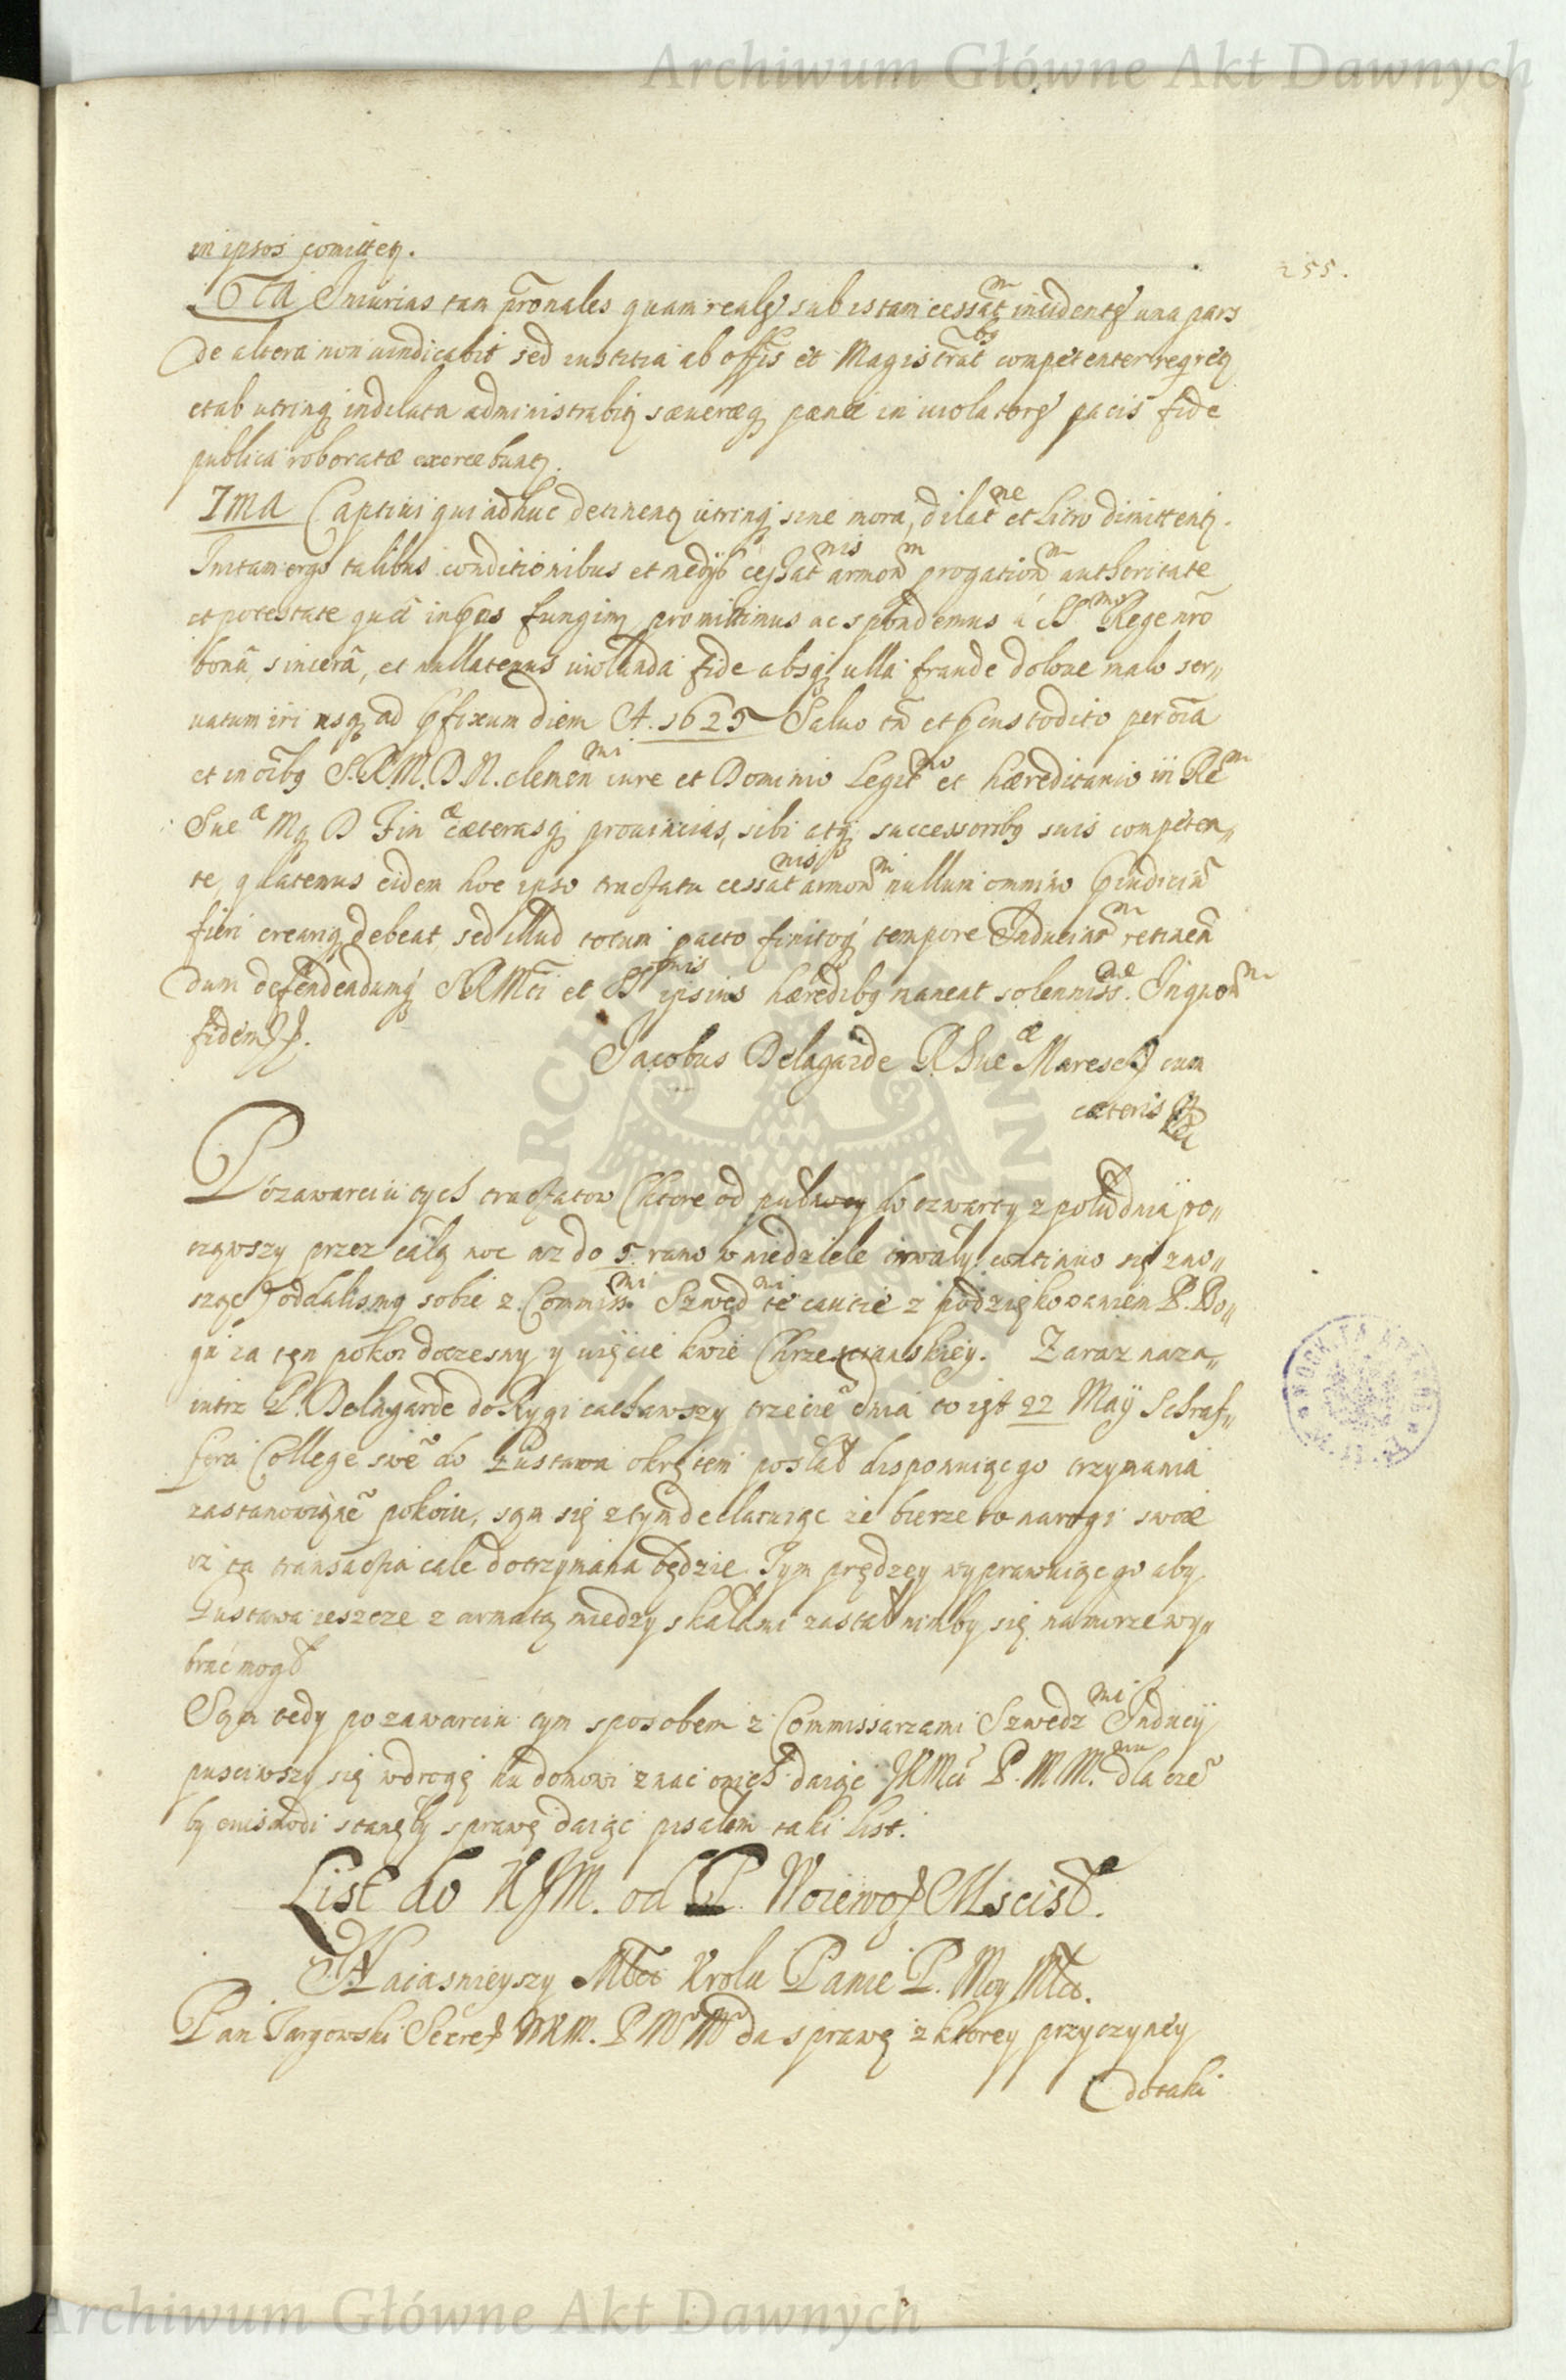 Archiwum Główne Akt Dawnych
in ipsos comitteŋ.
255.
6ta Iniurias tam pronales quam reales sub istam cessatm incidentes una pars
de altera non uindicabit sed iustitia ab offis et Magistratbs competenter regreŋ
et ab utrinq indilata administrabiŋ sæueræq pænæ in uiolatores pacis fide
publica roboratæ exercebunŋ.
7ma Captiui qui adhuc detinenŋ utrinq sine mora, dilatne et Litro dimittenŋ.
Initam ergo talibus conditionibus et medijs cessatnis armonm progationm authoritate
et potestate qua in hos fungimŋ promittimus ac spondemus à Smo Rege nro
bonâ, sincerâ, et nullatenus uiolanda fide absq ulla fraude doloue malo ser„
uatum iri usq ad pfixum diem A. 1625 Saluo tn et pcustodito per oia
et in oibs S.R.M.D.N. clemenmi iure et Dominio Legitmo et hæreditario in Rem
Sueæ Mŋ D Finæ cæterasq prouincias, sibi atq successoribs suis competen„
te, quatenus eidem hoc ipso tractatu cessatnis armonm nullum omnino piudiciu
fieri creariq debeat, sed illud totum pacto finitoq tempore Induciarm retinen
dum defendendumq SRMti et Smis ipsius hærædibs maneat solennissme. In quorm
fidem
Jacobus Delagarde R Sueæ Maresch cum
cæteris
Po zawarciu tych tractatow (ktore od pułwey do czwartey z południa po„
cząwszy przez całą noc az do 5. rano w niedziele trwały continuo się zno„
sząc) oddalismy sobie z Commissmi Szwedmi te cautie z podziękowaniem P. Bo„
gu za ten pokoi doczesny y uięcie krwie Chrzescianskiey. Zaraz naza„
iutrz P. Delagarde do Rygi ziachawszy trzeciego dnia to iest 22 Maij Schraf„
fera College swego do Gustawa okrętem posłał disponuiącego trzymania
zastanowionego pokoiu, sam się z tym declaruiąc ze bierze to na rogi swoie
iż ta transactia cale dotrzymana będzie. Tym prędzey wyprawuiącego aby
Gustawa ieszcze z armatą miedzy skałami zastał nimby się na morze wy„
brać mogł
Sam tedy po zawarciu tym sposobem z Commissarzami Szwedzmi Inducij
pusciwszy się w drogę ku domowi znac o nich daiąc JKMci P. M M.mu dla cze
by onis modi stanęły sprawę daiąc pisałem taki List.
List do KJM. od P. Woiewody Mscisł.
Naiasnieyszy Młci Krolu Panie P. Moy Młci.
Pan Targowski Secret WKM. P M M da sprawę z ktorey przyczyney
do taki
Archiwum Główne Akt Dawnych